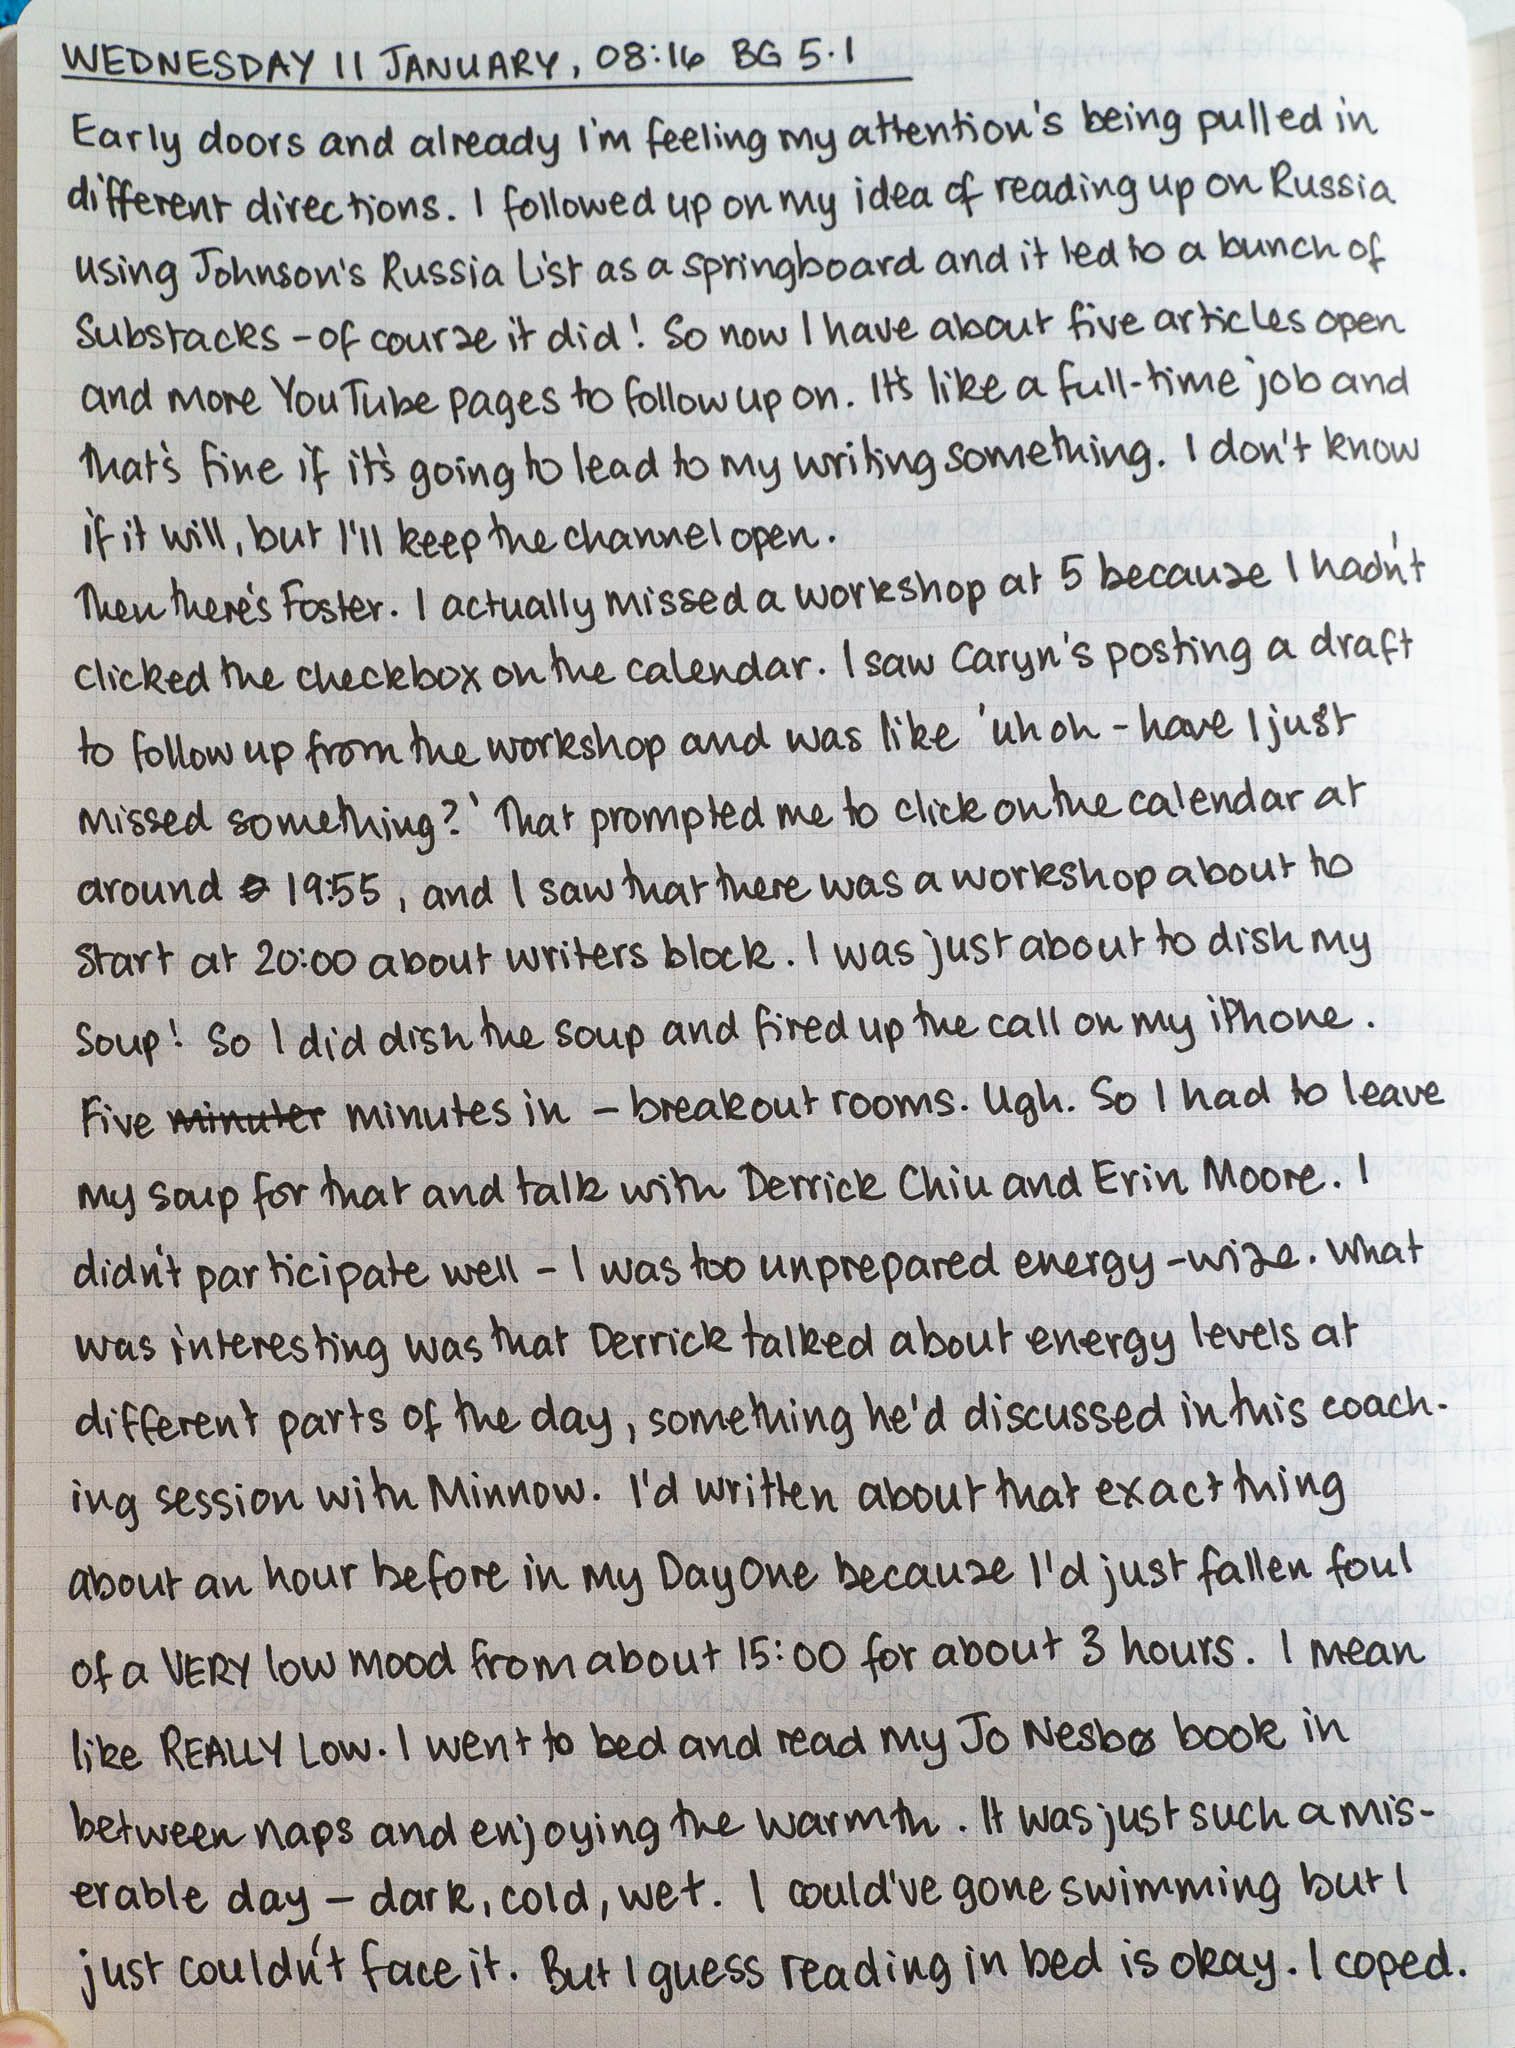 WEDNESDAY 11 JANUARY, 08:16 BG 5.1
Early doors and already I'm feeling my attention's being pulled in
different directions. I followed up on my idea of reading up on Russia
using Johnson's Russia List as a springboard and it led to a bunch of
Substacks – of course it did! So now I have about five articles open
and more YouTube pages to follow up on. It's like a full-time job and
that's fine if it's going to lead to my writing something. I don't know
if it will, but I'll keep the channel open.
Then there's Foster. I actually missed a workshop at 5 because I hadn't
clicked the checkbox on the calendar. I saw Caryn's posting a draft
to follow up from the workshop and was like 'uh oh – have I just
missed something?' That prompted me to click on the calendar at
around 19:55, and I saw that there was a workshop about to
start at 20:00 about writers block. I was just about to dish my
soup! So I did dish the soup and fired up the call on my iPhone.
Five minuter minutes in – breakout rooms. Ugh. So I had to leave
my soup for that and talk with Derrick Chiu and Erin Moore. I
didn't participate well – I was too unprepared energy-wise. What
was interesting was that Derrick talked about energy levels at
different parts of the day, something he'd discussed in this coach-
ing session with Minnow. I'd written about that exact thing
about an hour before in my DayOne because I'd just fallen foul
of a VERY low mood from about 15:00 for about 3 hours. I mean
like REALLY LOW. I went to bed and read my Jo Nesbø book in
between naps and enjoying the warmth. It was just such a mis-
erable day – dark, cold, wet. I could've gone swimming but I
just couldn't face it. But I guess reading in bed is okay. I coped.